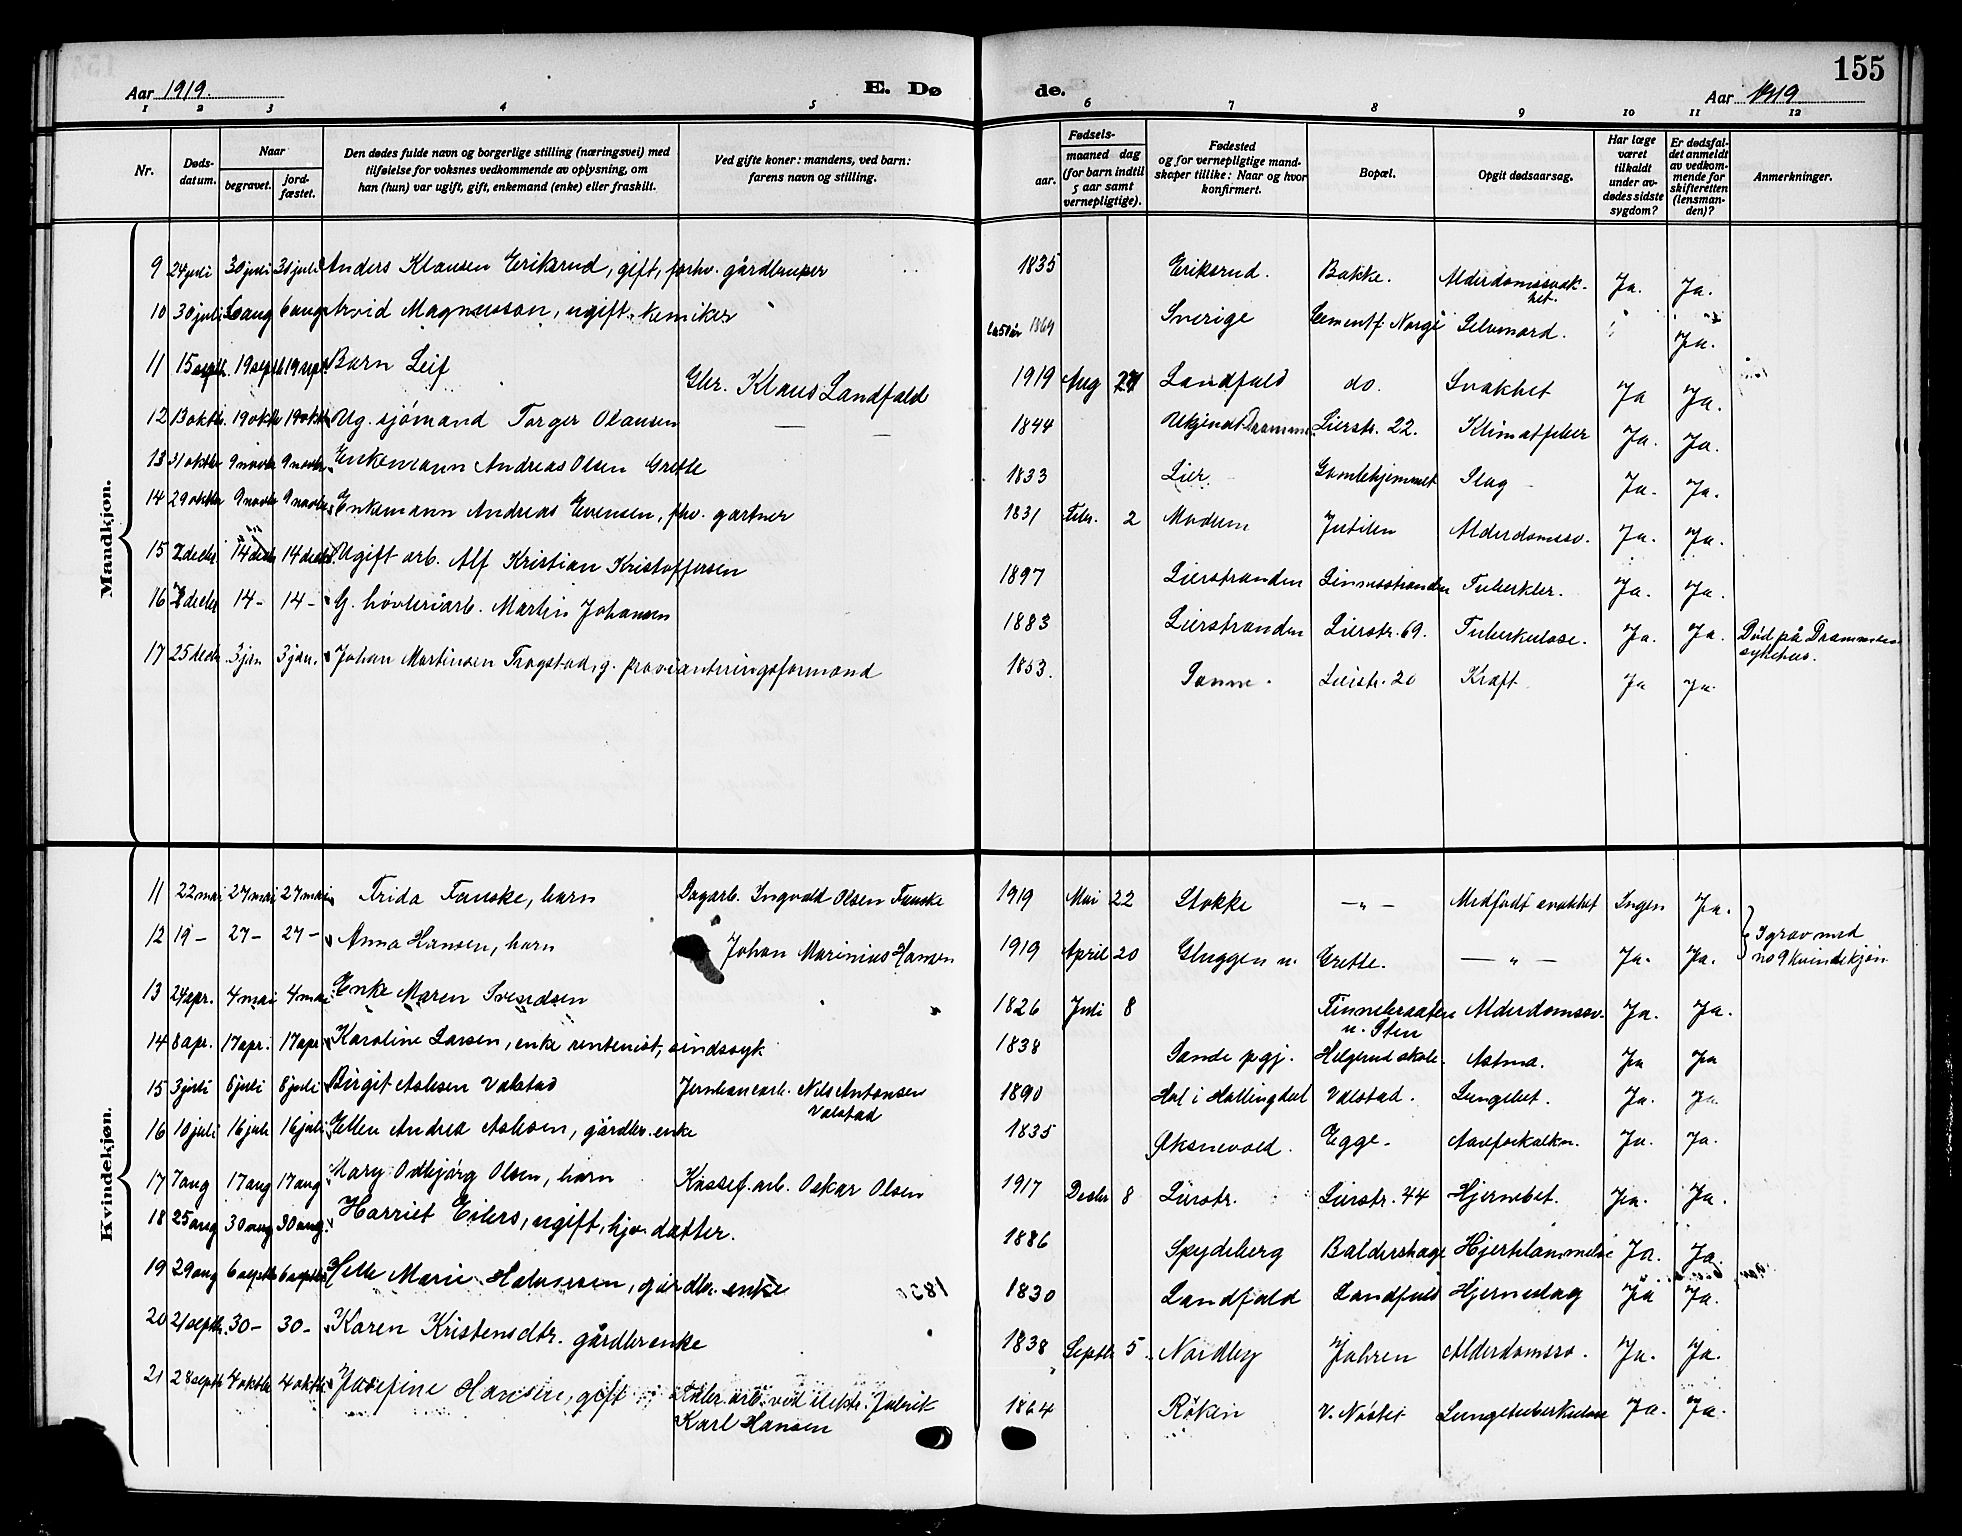 155
Aar 1919. E. Dø de. Aar 1919
1 2 3 4 5 6 7 8 9 10 11 12
Nr. Døds-datum. Naar begravet. jord-fæstet. Den dødes fulde navn og borgerlige stilling (næringsvei) med tilføielse for voksnes vedkommende av oplysning, om han (hun) var ugift, gift, enkemand (enke) eller fraskilt. Ved gifte koner: mandens, ved barn: farens navn og stilling. Fødsels- aar. maaned dag (for barn indtil 5 aar samt vernepligtige). Fødested og for vernepligtige mand-skaper tillike: Naar og hvor konfirmert. Bopæl. Opgit dødsaarsag. Har læge været tilkaldt under av-dødes sidste sygdom? Er dødsfal-det anmeldt av vedkom-mende for skifteretten (lensman-den)? Anmerkninger.
Mandkjøn.
9 24 juli 30 juli 30 juli Anders Klausen Eriksrud, gift, forhv. gårdbruker 1835 Eriksrud. Bakke. Alderdomssvak-het. Ja. Ja.
10 30 juli 6 aug 6 aug Arvid Magnusson, ugift, kemiker 1869 Sverige Cementf. Norge Selvmord. Ja.
11 15 septb. 19 septb 19 sept. Barn Leif Gbr. Klaus Landfald 1919 Aug 27 Landfald do. Svakhet Ja Ja.
12 13 oktbr. 19 oktb 19 oktb Ug. sjømand Torger Olausen — — 1844 Ukjendt Drammen Lierstr. 22. Klimatfeber Ja. Ja.
13 31 oktbr 9 novbr 9 novbr. Enkemann Andreas Olsen Grette 1833 Lier. Gamlehjemmet Slag Ja. Ja.
14 29 oktbr 9 novbr 9 novbr. Enkemann Andreas Evensen, fhv. gartner 1831 Febr. 2 Modum Jutilen Alderdomssv. Ja. Ja.
15 2 decbr. 14 decbr 14 decbr Ugift arb. Alf Kristian Kristoffersen 1897 Lierstranden Linnesstranden Tuberkler. Ja. Ja.
16 decbr 14 - 14 - G. høvleriarb. Martin Johansen 1883 Lierstranden Lierstr. 69. Tuberkulose. Ja. Ja. Død på Drammens sykehus.
17 25 decbr. 3 jan 3 jan. Johan Martinsen Trogstad, g. provianteringsformand 1853. Sanne. Lierstr. 20 Kræft. Ja Ja.
Kvindekjøn.
11 22 mai 27 mai 27 mai Frida Fauske, barn Dagarb. Ingvald Olsen Fauske 1919 Mai 22 Stokke — „ — Medfødt svakhet Ingen Ja.
12 19 - 27 - 27 - Anna Hansen, barn Johan Marinius Hansen 1919 April 20 Gluggen u. Grette. — „ — Ja. Ja. I grav med no 9 kvindekjøn
13 24 apr. 4 mai 4 mai Enke Maren Svendsen 1826 Juli 8 Finnebraaten u. Sten Alderdomssv. Ja. Ja.
14 8 apr. 17 apr. 17 apr Karoline Larsen, enke rentenist, sindssyk 1838 Sande pgj. Helgerud skole. Astma. Ja Ja
15 3 juli 8 juli 8 juli Birgit Aslesen Valstad Jernbanearb. Nils Antonsen Valstad 1890 Hol i Hallingdal Valstad. Lungebet. Ja. Ja.
16 10 juli 16 juli 16 juli Ellen Andrea Aslesen, gårdbr. enke 1835 Øksnevold. Egge. Aareforkalkn. Ja. Ja.
17 7 aug 17 aug 17 aug Mary Odbjørg Olsen, barn Kassef. arb. Oskar Olsen 1917 Decbr 8 Lierstr. Lierstr. 44 Hjernebet. Ja. Ja.
18 25 aug 30 aug 30 aug. Harriet Eilers, ugift, hjv. datter. 1886 Spydeberg Baldershage Hjertelammelse Ja. Ja.
19 29 aug 6 septb 6 septbr Helle Marie Halvorsen, gårdbr. enke 1830 Landfald Landfald Hjerneslag Ja Ja.
20 21 septb. 30 - 30 - Karen Kristensdtr. gårdbr enke 1838 Septbr 5. Nordby Jahren Alderdomssv. Ja. Ja.
21 28 septb 4 oktbr 4 oktbr Josefine Hansen, gift arb. ved elektr. fabrik Karl Hansen 1864 Røken V. Nøste Lungetuberkulose Ja. Ja.